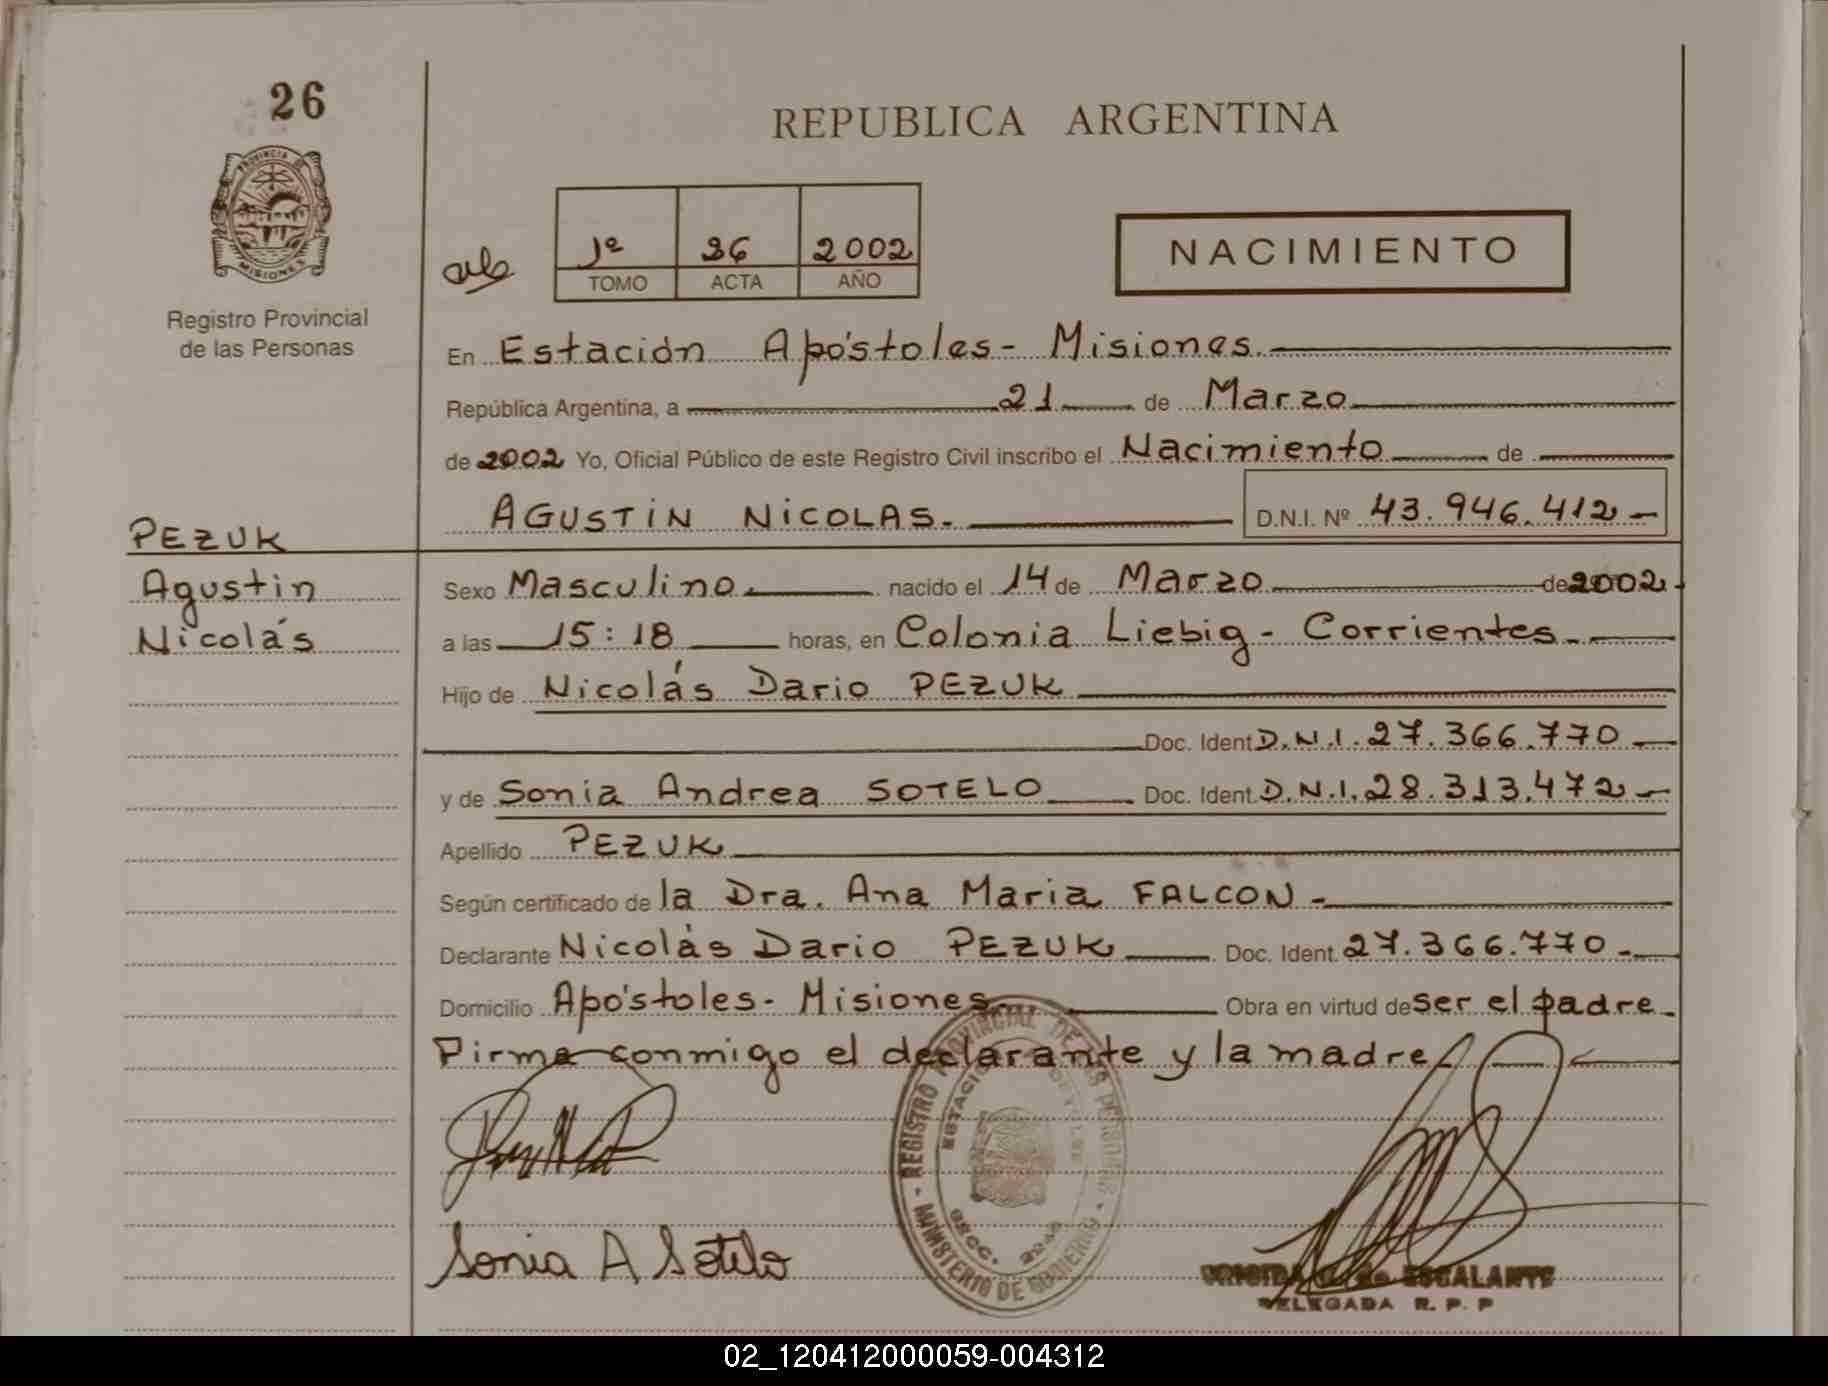 26
PROVINCIA DE
MISIONES
Registro Provincial
de las Personas
REPUBLICA ARGENTINA
1º 26 2002
TOMO ACTA AÑO
NACIMIENTO
En Estación Apóstoles - Misiones.
República Argentina, a 21 de Marzo
de 2002 Yo, Oficial Público de este Registro Civil inscribo el Nacimiento de
AGUSTIN NICOLAS. D.N.I. Nº 43.946.412-
PEZUK
Agustin
Nicolás
Sexo Masculino. nacido el 14 de Marzo de 2002.
a las 15:18 horas, en Colonia Liebig - Corrientes.
Hijo de Nicolás Dario PEZUK
Doc. Ident D.N.I. 27.366.770
y de Sonia Andrea SOTELO Doc. Ident. D.N.I. 28.313.472
Apellido PEZUK
Según certificado de la Dra. Ana Maria FALCON.
Declarante Nicolás Dario PEZUK Doc. Ident. 27.366.770.
Domicilio Apóstoles - Misiones. Obra en virtud de ser el padre.
Firma conmigo el declarante y la madre
REGISTRO PROVINCIAL DE LAS PERSONAS - MINISTERIO DE GOBIERNO -
Sonia A Sotelo
de ESCALANTE
DELEGADA R. P. P
02_120412000059-004312